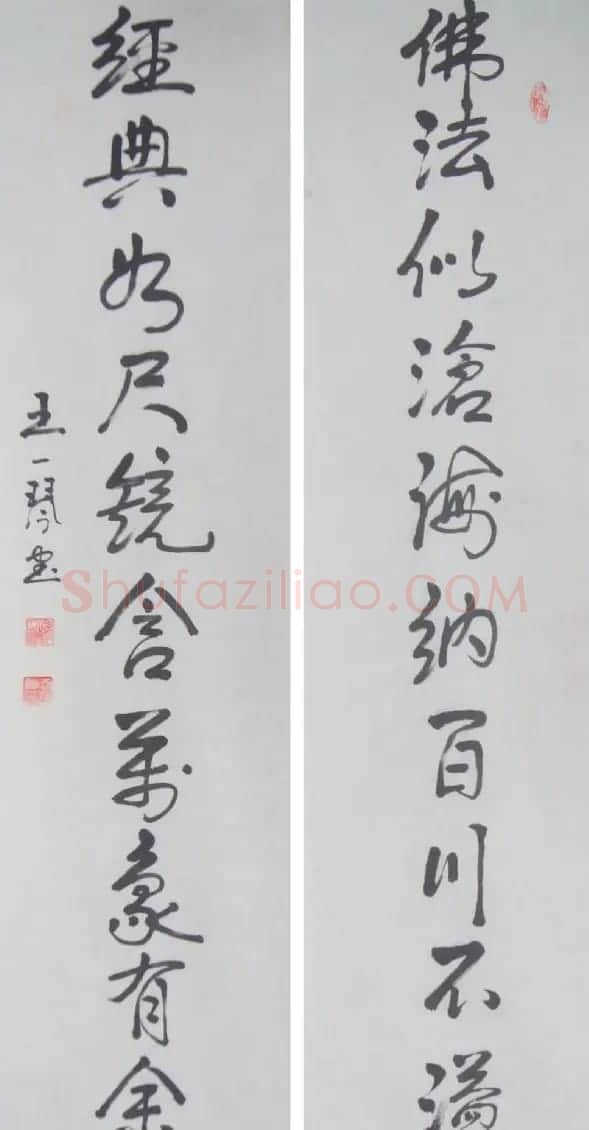 佛法似滄海納百川不溢
經典如尺鏡含萬象有余
王一琴書
Shufaziliao.COM